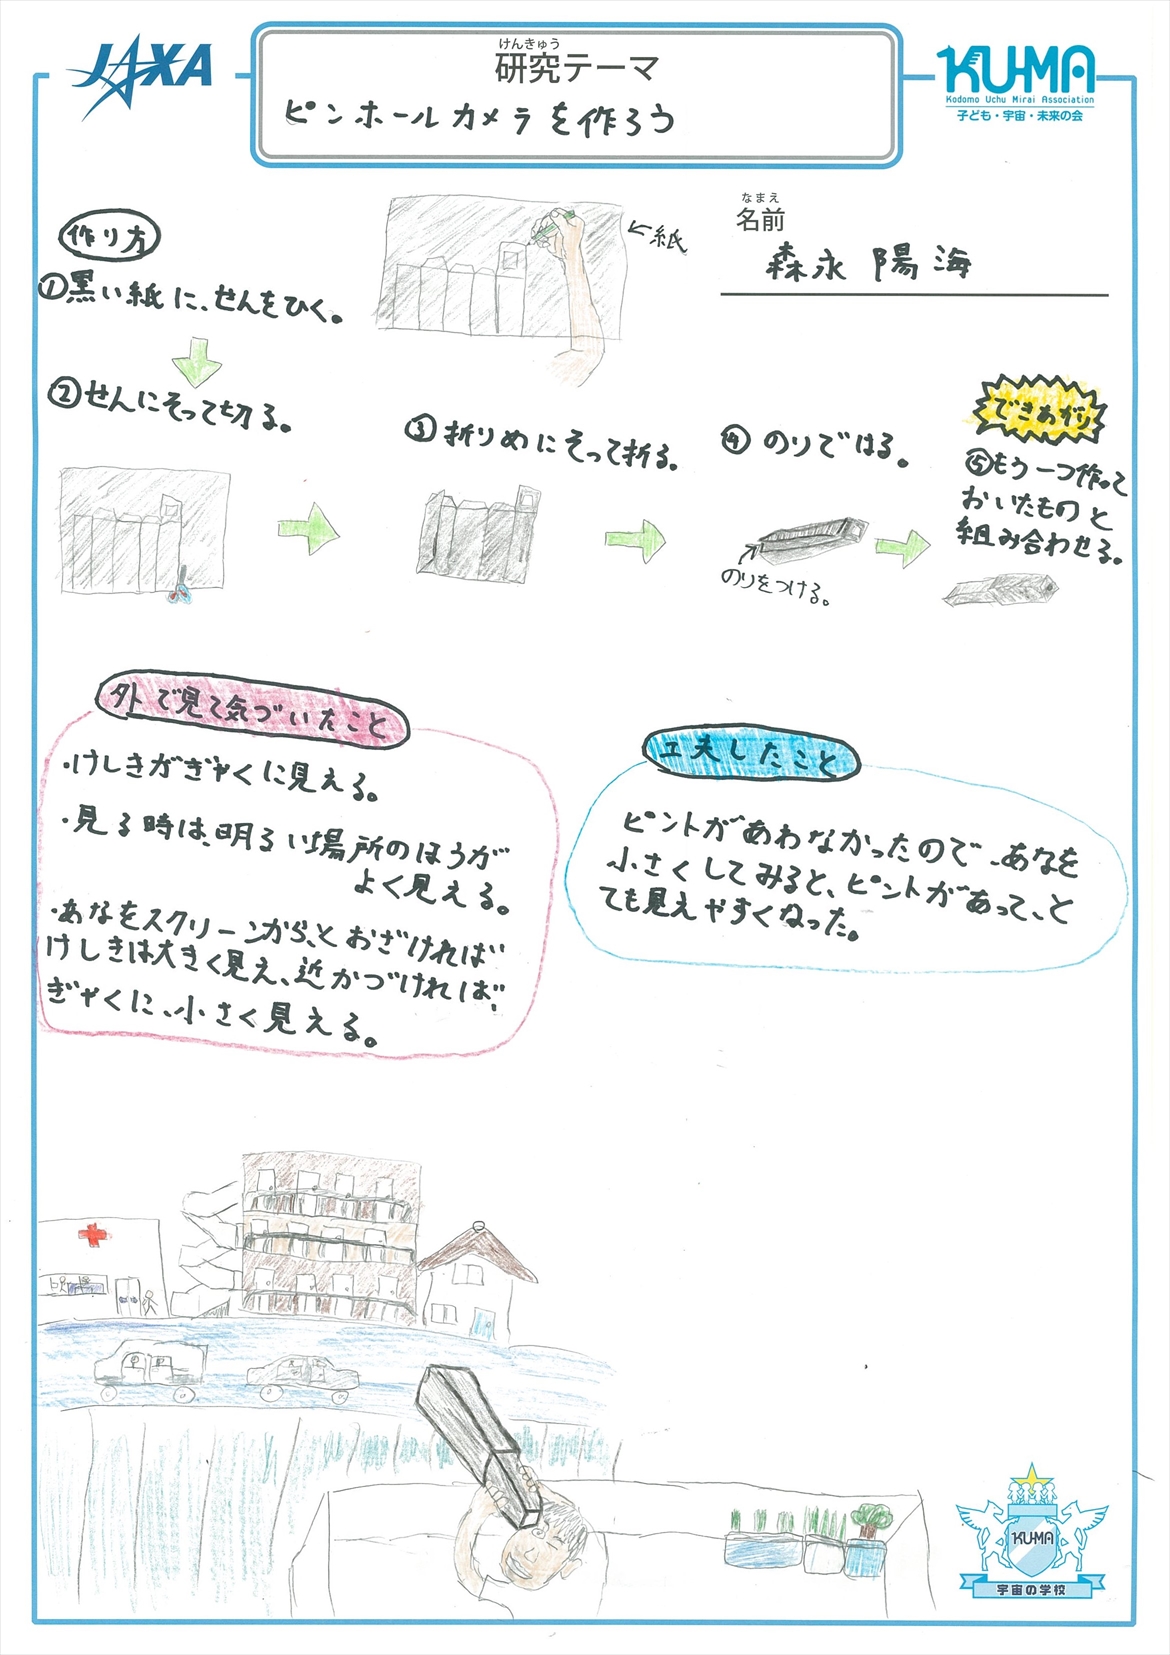 JAXA
けんきゅう
研究テーマ
ピンホールカメラを作ろう
KU-MA
Kodomo Uchu Mirai Association
子ども・宇宙・未来の会
なまえ
名前
森永 陽海
作り方
①黒い紙に、せんをひく。
←紙
②せんにそって切る。
③折りめにそって折る。
④のりではる。
のりをつける。
できあがり
⑤もう一つ作って
おいたものと
組み合わせる。
外で見て気づいたこと
・けしきがぎゃくに見える。
・見る時は、明るい場所のほうが
よく見える。
・あなをスクリーンから、とおざければ
けしきは大きく見え、近かづければ、
ぎゃくに、小さく見える。
工夫したこと
ピントがあわなかったので、あなを
小さくしてみると、ピントがあって、と
ても見えやすくなった。
KU-MA
宇宙の学校